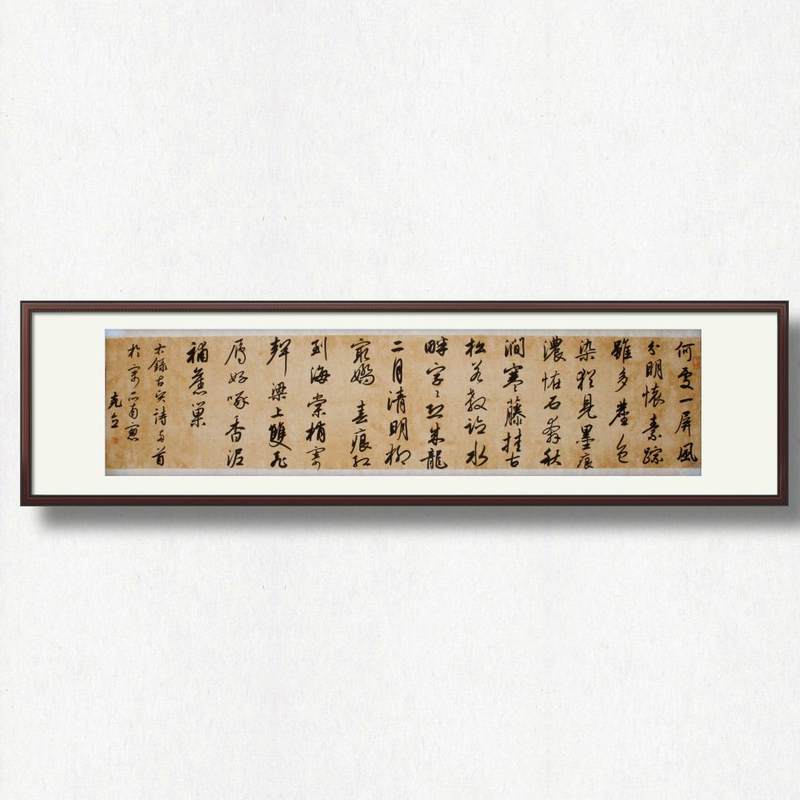 何處一屏風
分明懷素蹤
雖多塵色
染猶見墨痕
濃怪石奔秋
澗寒藤挂古
松若教臨水
畔字々恐成龍
二月清明柳
最嬌春痕紅
到海棠梢寄
聲梁上雙飛
燕好啄香泥
補舊巢
錄古賢詩首
於